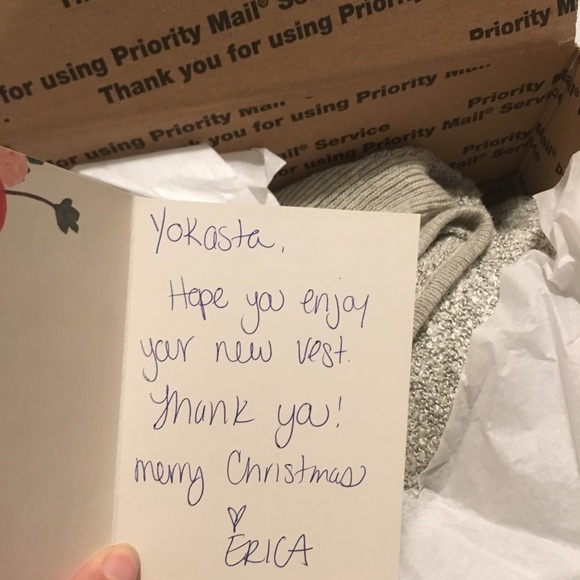 for using Priority Mail® Service
Thank you for using Priority
Priority M
or using Priority Mail
you for using Priority
Priority
ail® Service
r using Priority Mail® Service
Priority
Mail® Service
Yokasta,
Hope you enjoy
your new vest.
Thank you!
merry Christmas
♡
ERICA